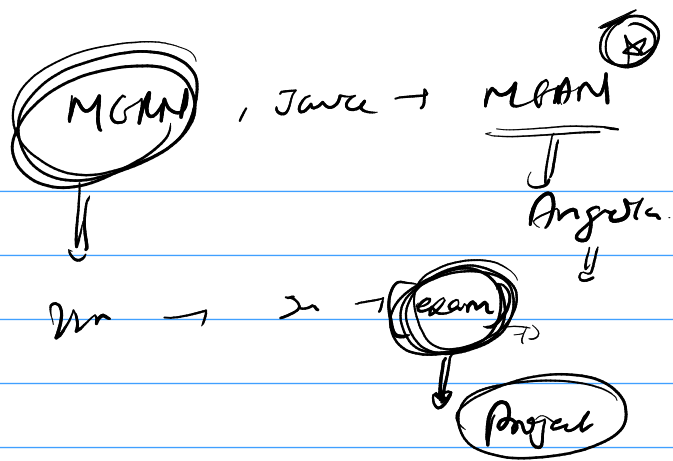 MERN , Java → MEAN
Angular
→ → exam
Project